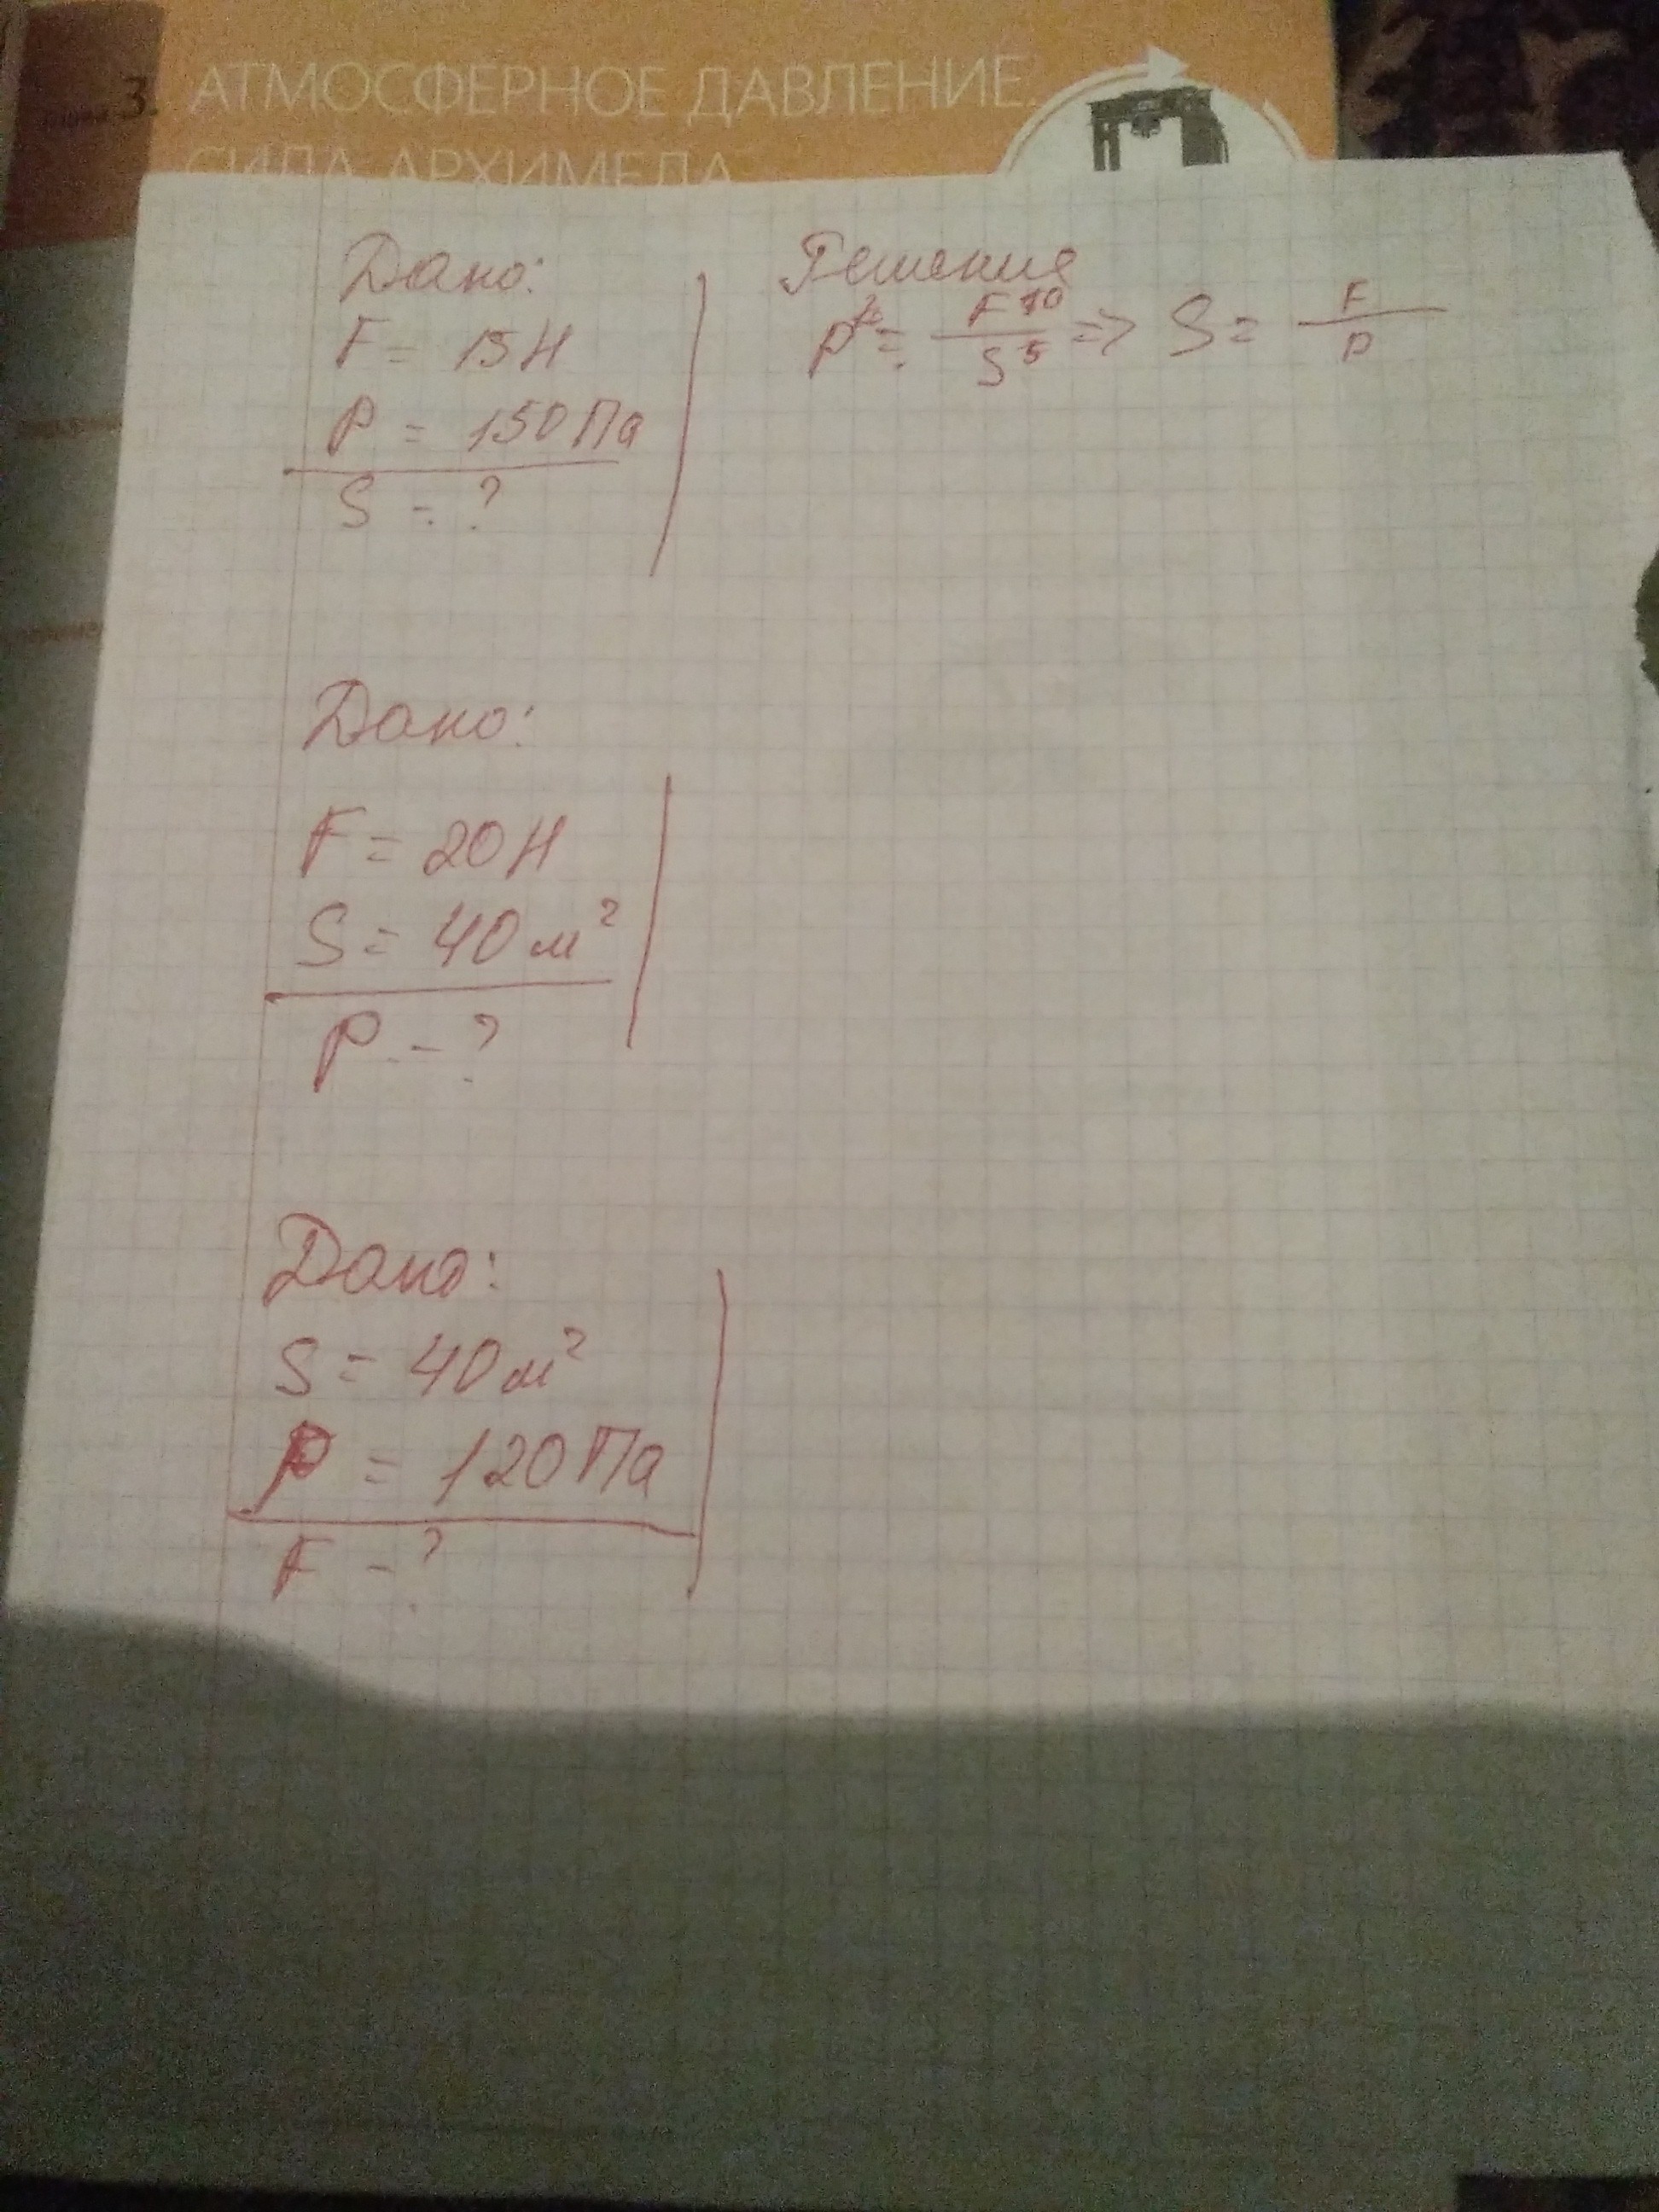 3. АТМОСФЕРНОЕ ДАВЛЕНИЕ.
СИЛА АРХИМЕДА
Дано:
F = 15 Н
P = 150 Па
S = ?
Решение
P² = F¹⁰/S⁵ => S = F/P
Дано:
F = 20 Н
S = 40 м²
P - ?
Дано:
S = 40 м²
P = 120 Па
F - ?